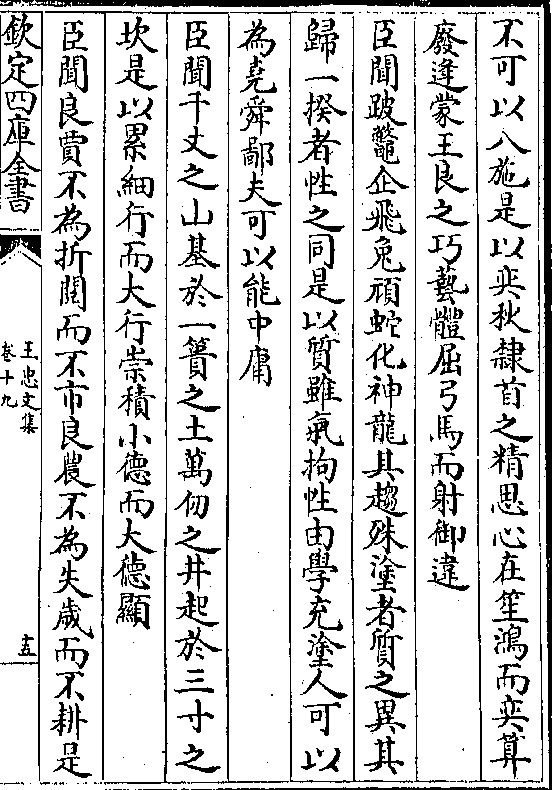 不可以八施是以奕秋隷首之精思心在笙鴻而奕算
廢逢蒙王良之巧藝體屈弓馬而射御違
臣聞跛鼈企飛兔頑蛇化神龍其趨殊塗者質之異其
歸一揆者性之同是以質雖氣拘性由學充塗人可以
為堯舜鄙夫可以能中庸
臣聞千丈之山基於一簣之土萬仞之井起於三寸之
坎是以累細行而大行崇積小德而大德顯
臣聞良賈不為折閱而不市良農不為失歲而不耕是
欽定四庫全書
王忠文集
卷十九
十五